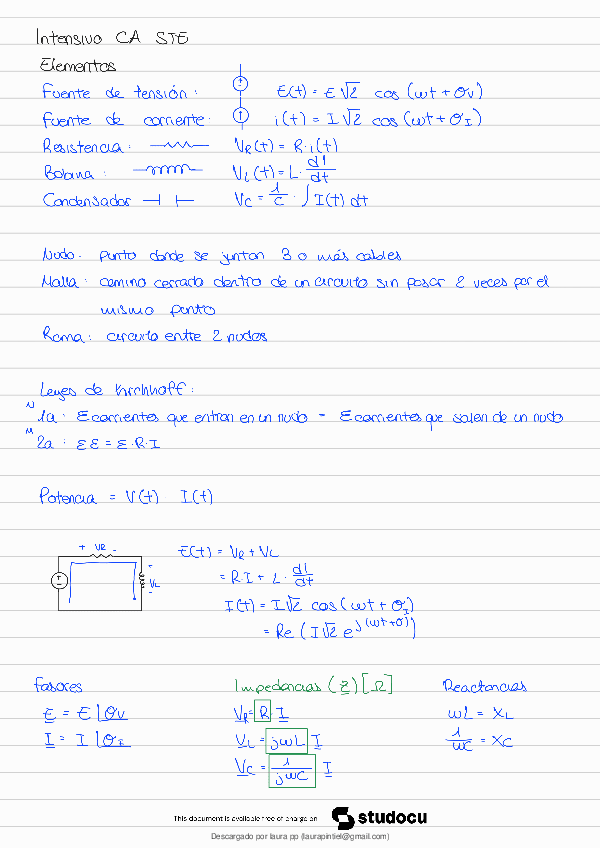 Intensivo CA STE
Elementos
Fuente de tensión: E(t) = E√2 cos (ωt + θv)
Fuente de corriente: i(t) = I√2 cos (ωt + θI)
Resistencia: VR(t) = R·i(t)
Bobina: VL(t) = L· dI/dt
Condensador VC = 1/C · ∫ I(t) dt
Nudo: punto donde se juntan 3 o más cables
Malla: camino cerrado dentro de un circuito sin pasar 2 veces por el
mismo punto
Rama: circuito entre 2 nudos
Leyes de Kirchhoff:
N 1a: Σ corrientes que entran en un nudo = Σ corrientes que salen de un nudo
M 2a: ΣE = Σ·R·I
Potencia = V(t) I(t)
+ VR -
+ VL -
E(t) = VR + VL
= R·I + L· dI/dt
I(t) = I√2 cos(ωt + θI)
= Re (I√2 e^j(ωt+θ))
Fasores Impedancias (Z) [Ω] Reactancias
E = E∠θv VR = R I ωL = XL
I = I∠θI VL = jωL I 1/ωC = XC
VC = 1/jωC I
This document is available free of charge on studocu
Descargado por laura pp (laurapintiel@gmail.com)